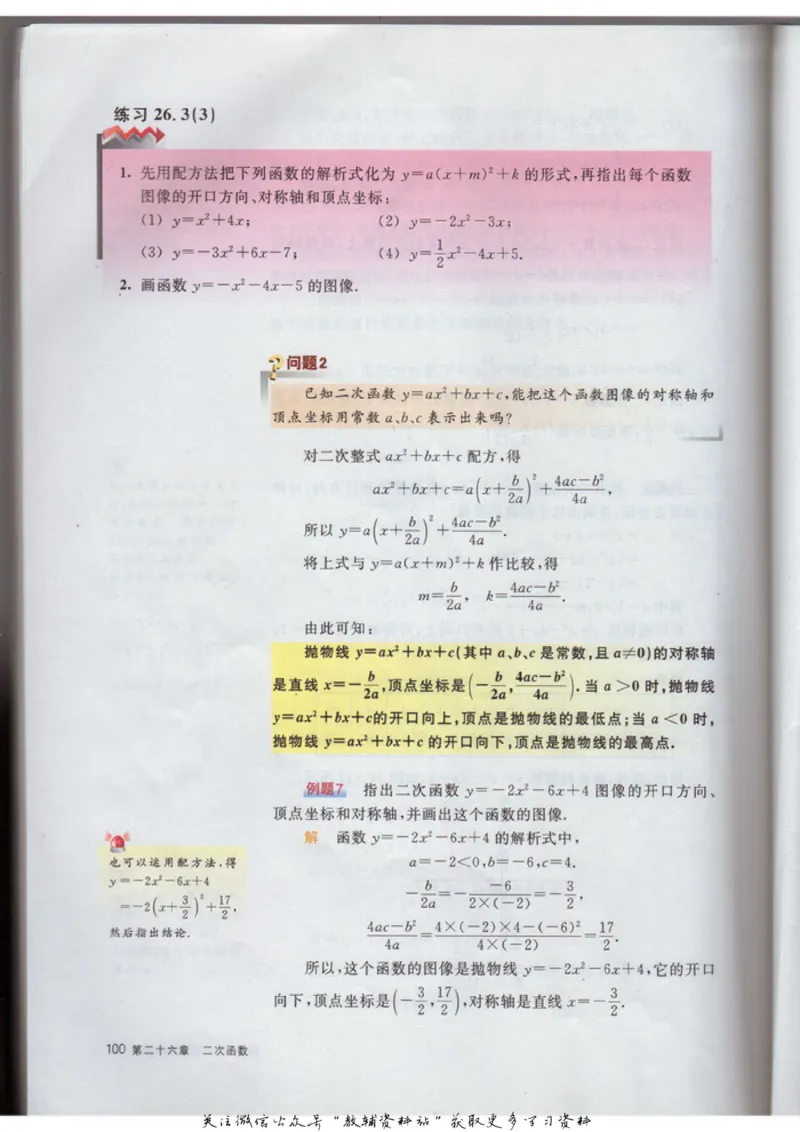 练习 26.3(3)
1. 先用配方法把下列函数的解析式化为 y=a(x+m)²+k 的形式,再指出每个函数
图像的开口方向、对称轴和顶点坐标:
(1) y=x²+4x; (2) y=-2x²-3x;
(3) y=-3x²+6x-7; (4) y=1/2x²-4x+5.
2. 画函数 y=-x²-4x-5 的图像.
问题2
已知二次函数 y=ax²+bx+c,能把这个函数图像的对称轴和
顶点坐标用常数 a、b、c 表示出来吗?
对二次整式 ax²+bx+c 配方,得
ax²+bx+c=a(x+b/2a)²+(4ac-b²)/4a,
所以 y=a(x+b/2a)²+(4ac-b²)/4a.
将上式与 y=a(x+m)²+k 作比较,得
m=b/2a, k=(4ac-b²)/4a.
由此可知:
抛物线 y=ax²+bx+c(其中 a、b、c 是常数,且 a≠0)的对称轴
是直线 x=-b/2a,顶点坐标是(-b/2a,(4ac-b²)/4a).当 a>0 时,抛物线
y=ax²+bx+c的开口向上,顶点是抛物线的最低点;当 a<0 时,
抛物线 y=ax²+bx+c 的开口向下,顶点是抛物线的最高点.
例题7 指出二次函数 y=-2x²-6x+4 图像的开口方向、
顶点坐标和对称轴,并画出这个函数的图像.
解 函数 y=-2x²-6x+4 的解析式中,
a=-2<0,b=-6,c=4.
-b/2a=-(-6)/(2×(-2))=-3/2,
(4ac-b²)/4a=(4×(-2)×4-(-6)²)/(4×(-2))=17/2.
所以,这个函数的图像是抛物线 y=-2x²-6x+4,它的开口
向下,顶点坐标是(-3/2,17/2),对称轴是直线 x=-3/2.
也可以运用配方法,得
y=-2x²-6x+4
=-2(x+3/2)²+17/2,
然后指出结论.
100 第二十六章 二次函数
关注微信公众号“教辅资料站”获取更多学习资料